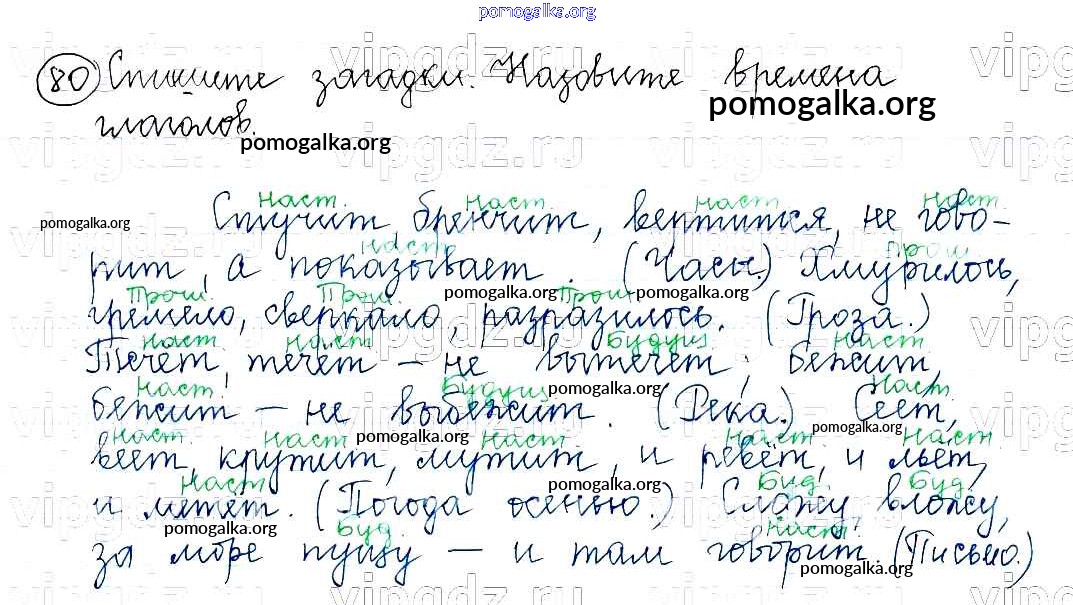 pomogalka.org
80 Спишите загадки. Назовите времена
pomogalka.org
глаголов.
pomogalka.org
vipgdz.ru
наст. наст. наст. наст.
pomogalka.org
Стучит, бренчит, вертится, не гово-
наст. прош.
рит, а показывает. (Часы.) Хмурилось,
Прош. Прош. pomogalka.org Прош. pomogalka.org
гремело, сверкало, разразилось. (Гроза.)
наст наст Будущ наст
Течёт, течёт – не вытечет; бежит,
наст Будущ pomogalka.org Наст
бежит – не выбежит. (Река.) Сеет,
наст. наст pomogalka.org наст pomogalka.org наст наст
веет, крутит, мутит, и ревёт, и льёт,
наст pomogalka.org Буд. Буд.
и метёт. (Погода осенью.) Сложу, вложу,
pomogalka.org Буд. наст.
за море пущу – и там говорит. (Письмо.)
pomogalka.org